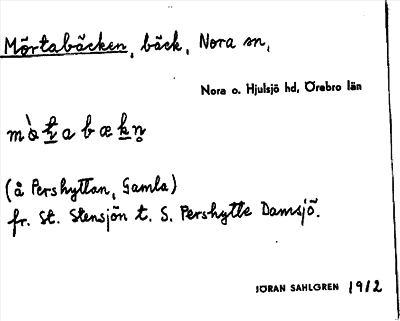 Mörtabäcken, bäck, Nora sn,
Nora o. Hjulsjö hd, Örebro län
(å Pershyttan, Gamla)
fr. St. Stensjön t. S. Pershytte Damsjö.
JÖRAN SAHLGREN 1912